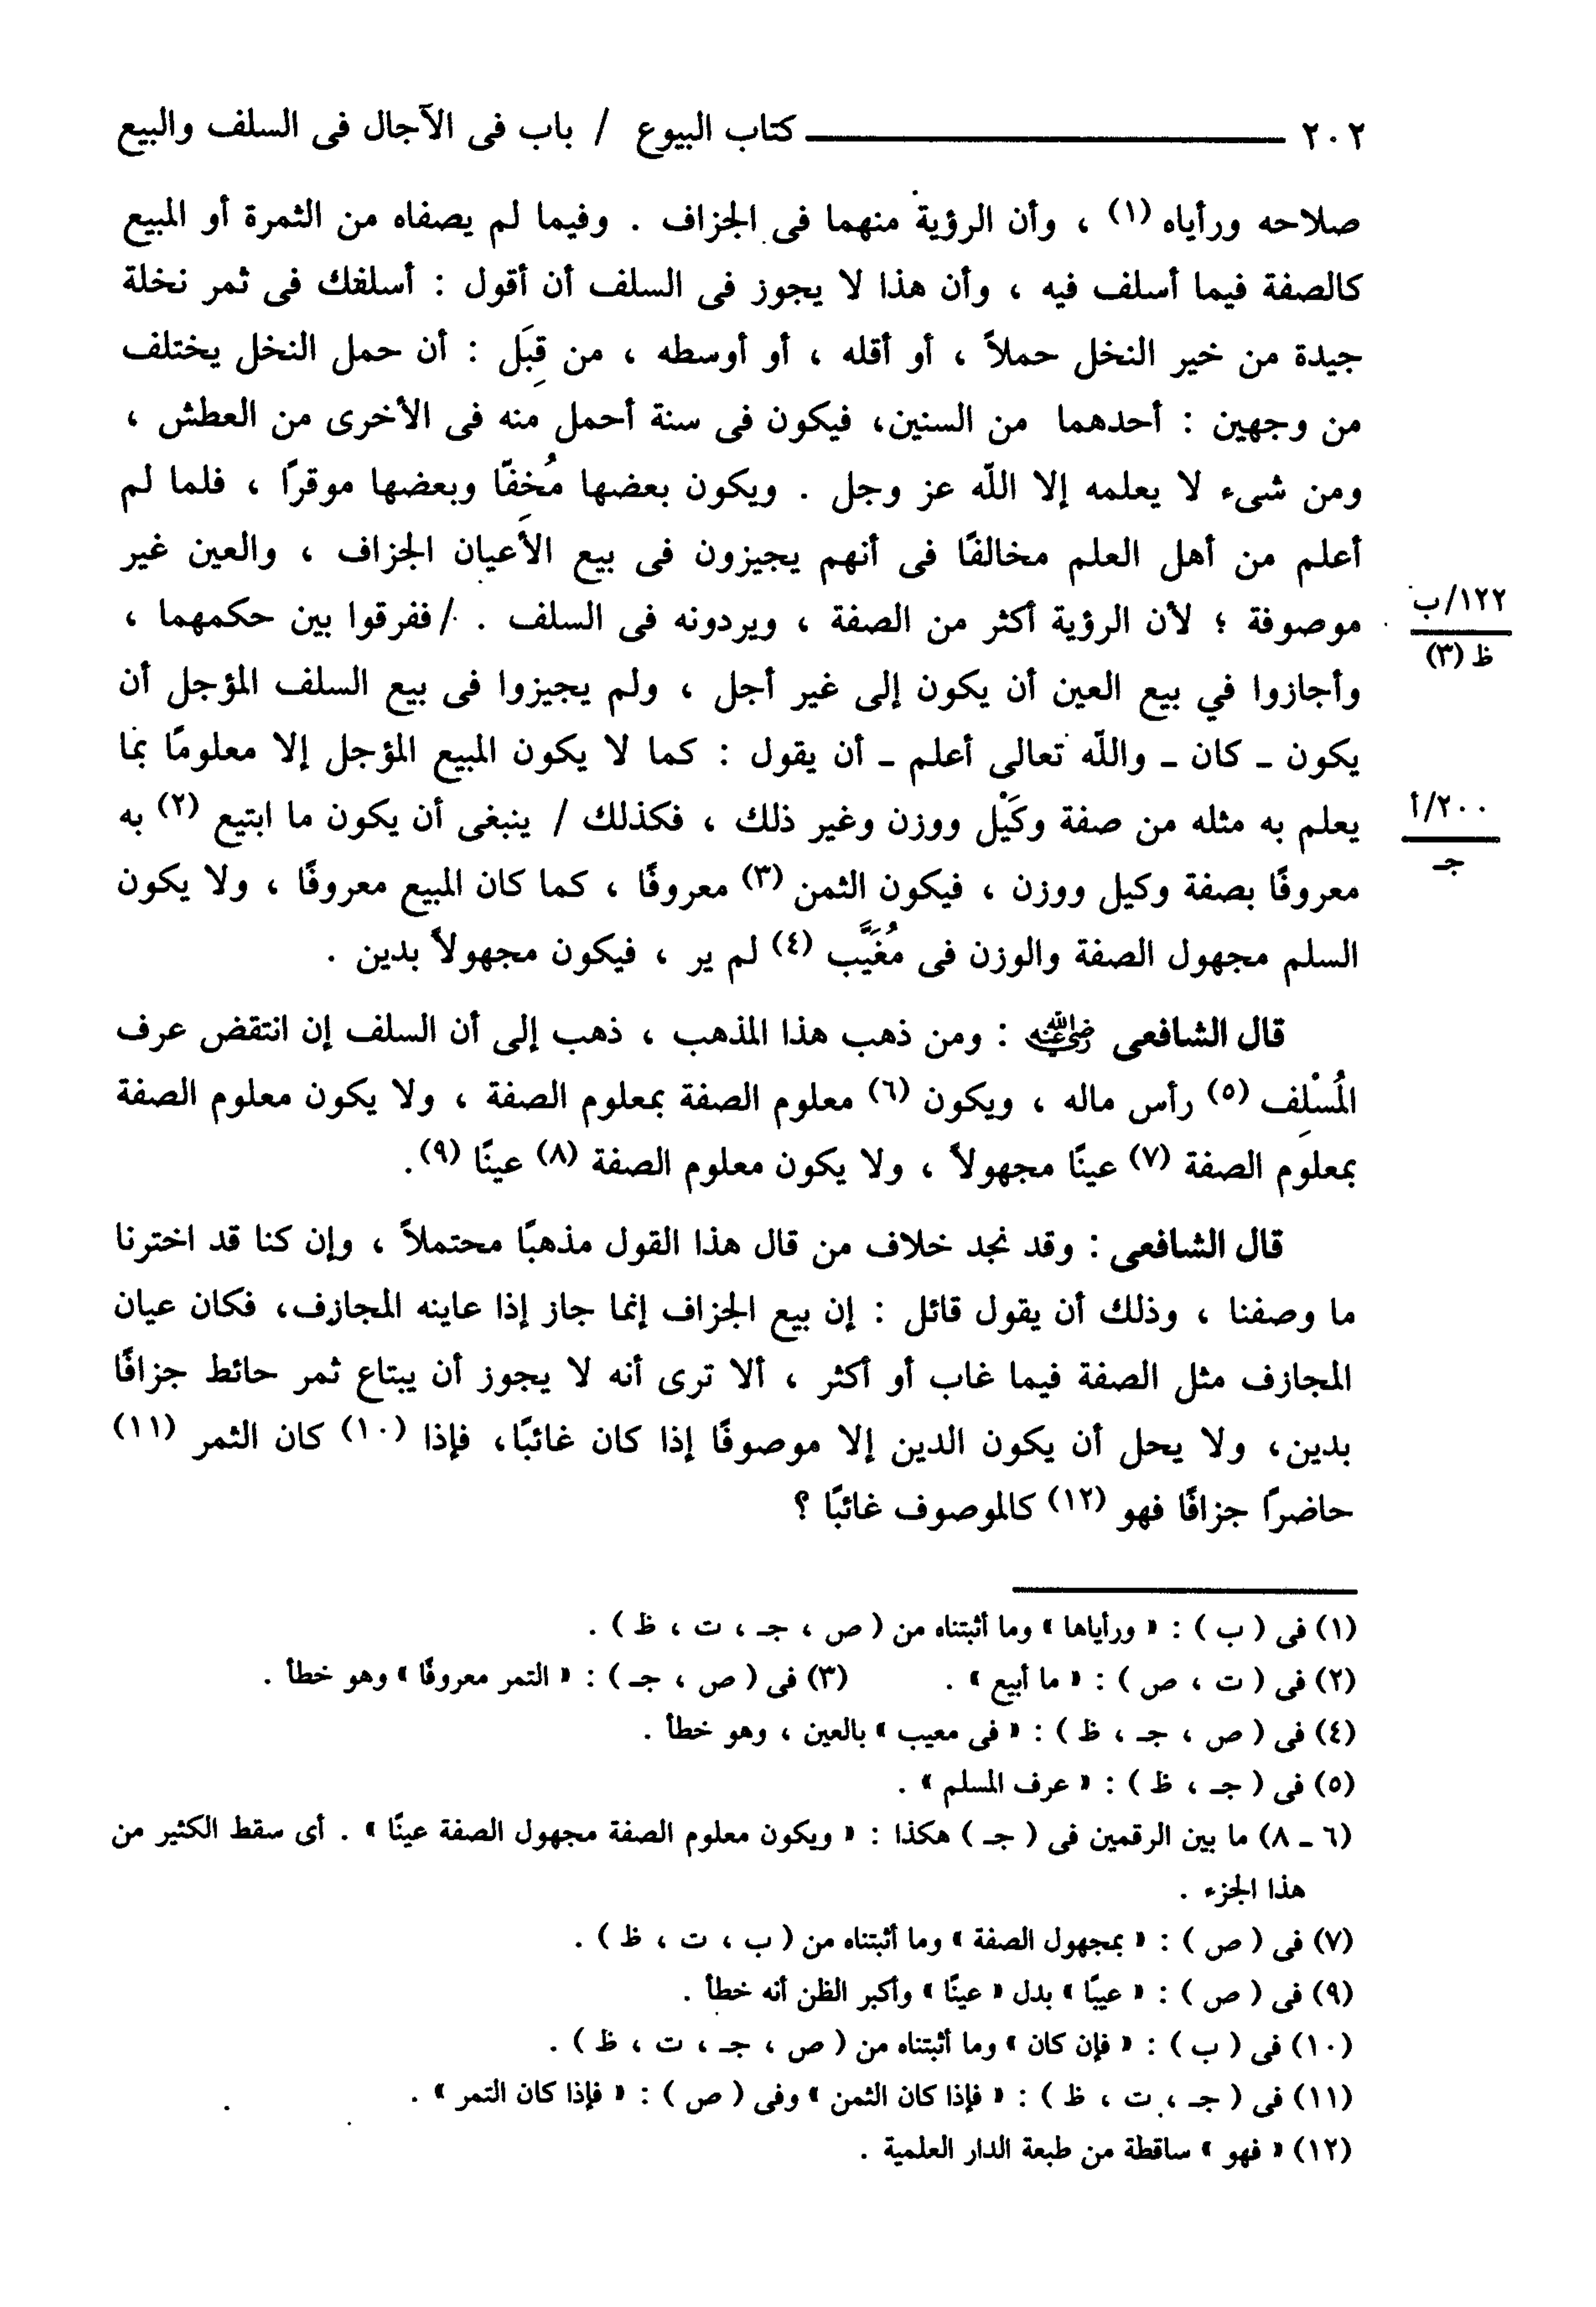 ٢٠٢ ــــــــ كتاب البيوع / باب فى الآجال فى السلف والبيع
صلاحه ورأياه (١) ، وأن الرؤية منهما فى الجزاف . وفيما لم يصفاه من الثمرة أو المبيع
كالصفة فيما أسلف فيه ، وأن هذا لا يجوز فى السلف أن أقول : أسلفك فى ثمر نخلة
جيدة من خير النخل حملاً ، أو أقله ، أو أوسطه ، من قِبَل : أن حمل النخل يختلف
من وجهين : أحدهما من السنين، فيكون فى سنة أحمل منه فى الأخرى من العطش ،
ومن شىء لا يعلمه إلا الله عز وجل . ويكون بعضها مُخِفّا وبعضها موقراً ، فلما لم
أعلم من أهل العلم مخالفًا فى أنهم يجيزون فى بيع الأعيان الجزاف ، والعين غير
موصوفة ؛ لأن الرؤية أكثر من الصفة ، ويردونه فى السلف . / ففرقوا بين حكمهما ،
١٢٢/ب
ظ (٣)
وأجازوا في بيع العين أن يكون إلى غير أجل ، ولم يجيزوا فى بيع السلف المؤجل أن
يكون ـ كان ـ والله تعالى أعلم ـ أن يقول : كما لا يكون المبيع المؤجل إلا معلومًا بما
يعلم به مثله من صفة وكَيْل ووزن وغير ذلك ، فكذلك / ينبغى أن يكون ما ابتيع (٢) به
٢٠٠/أ
جـ
معروفًا بصفة وكيل ووزن ، فيكون الثمن (٣) معروفًا ، كما كان المبيع معروفًا ، ولا يكون
السلم مجهول الصفة والوزن فى مُغَيَّب (٤) لم ير ، فيكون مجهولاً بدين .
قال الشافعى رضي الله عنه : ومن ذهب هذا المذهب ، ذهب إلى أن السلف إن انتقض عرف
المُسْلِف (٥) رأس ماله ، ويكون (٦) معلوم الصفة بمعلوم الصفة ، ولا يكون معلوم الصفة
بمعلوم الصفة (٧) عينًا مجهولاً ، ولا يكون معلوم الصفة (٨) عينًا (٩).
قال الشافعى : وقد نجد خلاف من قال هذا القول مذهبًا محتملاً ، وإن كنا قد اخترنا
ما وصفنا ، وذلك أن يقول قائل : إن بيع الجزاف إنما جاز إذا عاينه المجازف، فكان عيان
المجازف مثل الصفة فيما غاب أو أكثر ، ألا ترى أنه لا يجوز أن يبتاع ثمر حائط جزافًا
بدين، ولا يحل أن يكون الدين إلا موصوفًا إذا كان غائبًا، فإذا (١٠) كان الثمر (١١)
حاضراً جزافًا فهو (١٢) كالموصوف غائبًا ؟
(١) فى ( ب ) : « ورأياها » وما أثبتناه من ( ص ، جـ ، ت ، ظ ) .
(٢) فى ( ت ، ص ) : « ما أبيع » . (٣) فى ( ص ، جـ ) : « التمر معروفًا » وهو خطأ .
(٤) فى ( ص ، جـ ، ظ ) : « فى معيب » بالعين ، وهو خطأ .
(٥) فى ( جـ ، ظ ) : « عرف المسلم » .
(٦ ـ ٨) ما بين الرقمين فى ( جـ ) هكذا : « ويكون معلوم الصفة مجهول الصفة عينًا » . أى سقط الكثير من
هذا الجزء .
(٧) فى ( ص ) : « بمجهول الصفة » وما أثبتناه من ( ب ، ت ، ظ ) .
(٩) فى ( ص ) : « عيبًا » بدل « عينًا » وأكبر الظن أنه خطأ .
(١٠) فى ( ب ) : « فإن كان » وما أثبتناه من ( ص ، جـ ، ت ، ظ ) .
(١١) فى ( جـ ، ت ، ظ ) : « فإذا كان الثمن » وفى ( ص ) : « فإذا كان التمر » .
(١٢) « فهو » ساقطة من طبعة الدار العلمية .